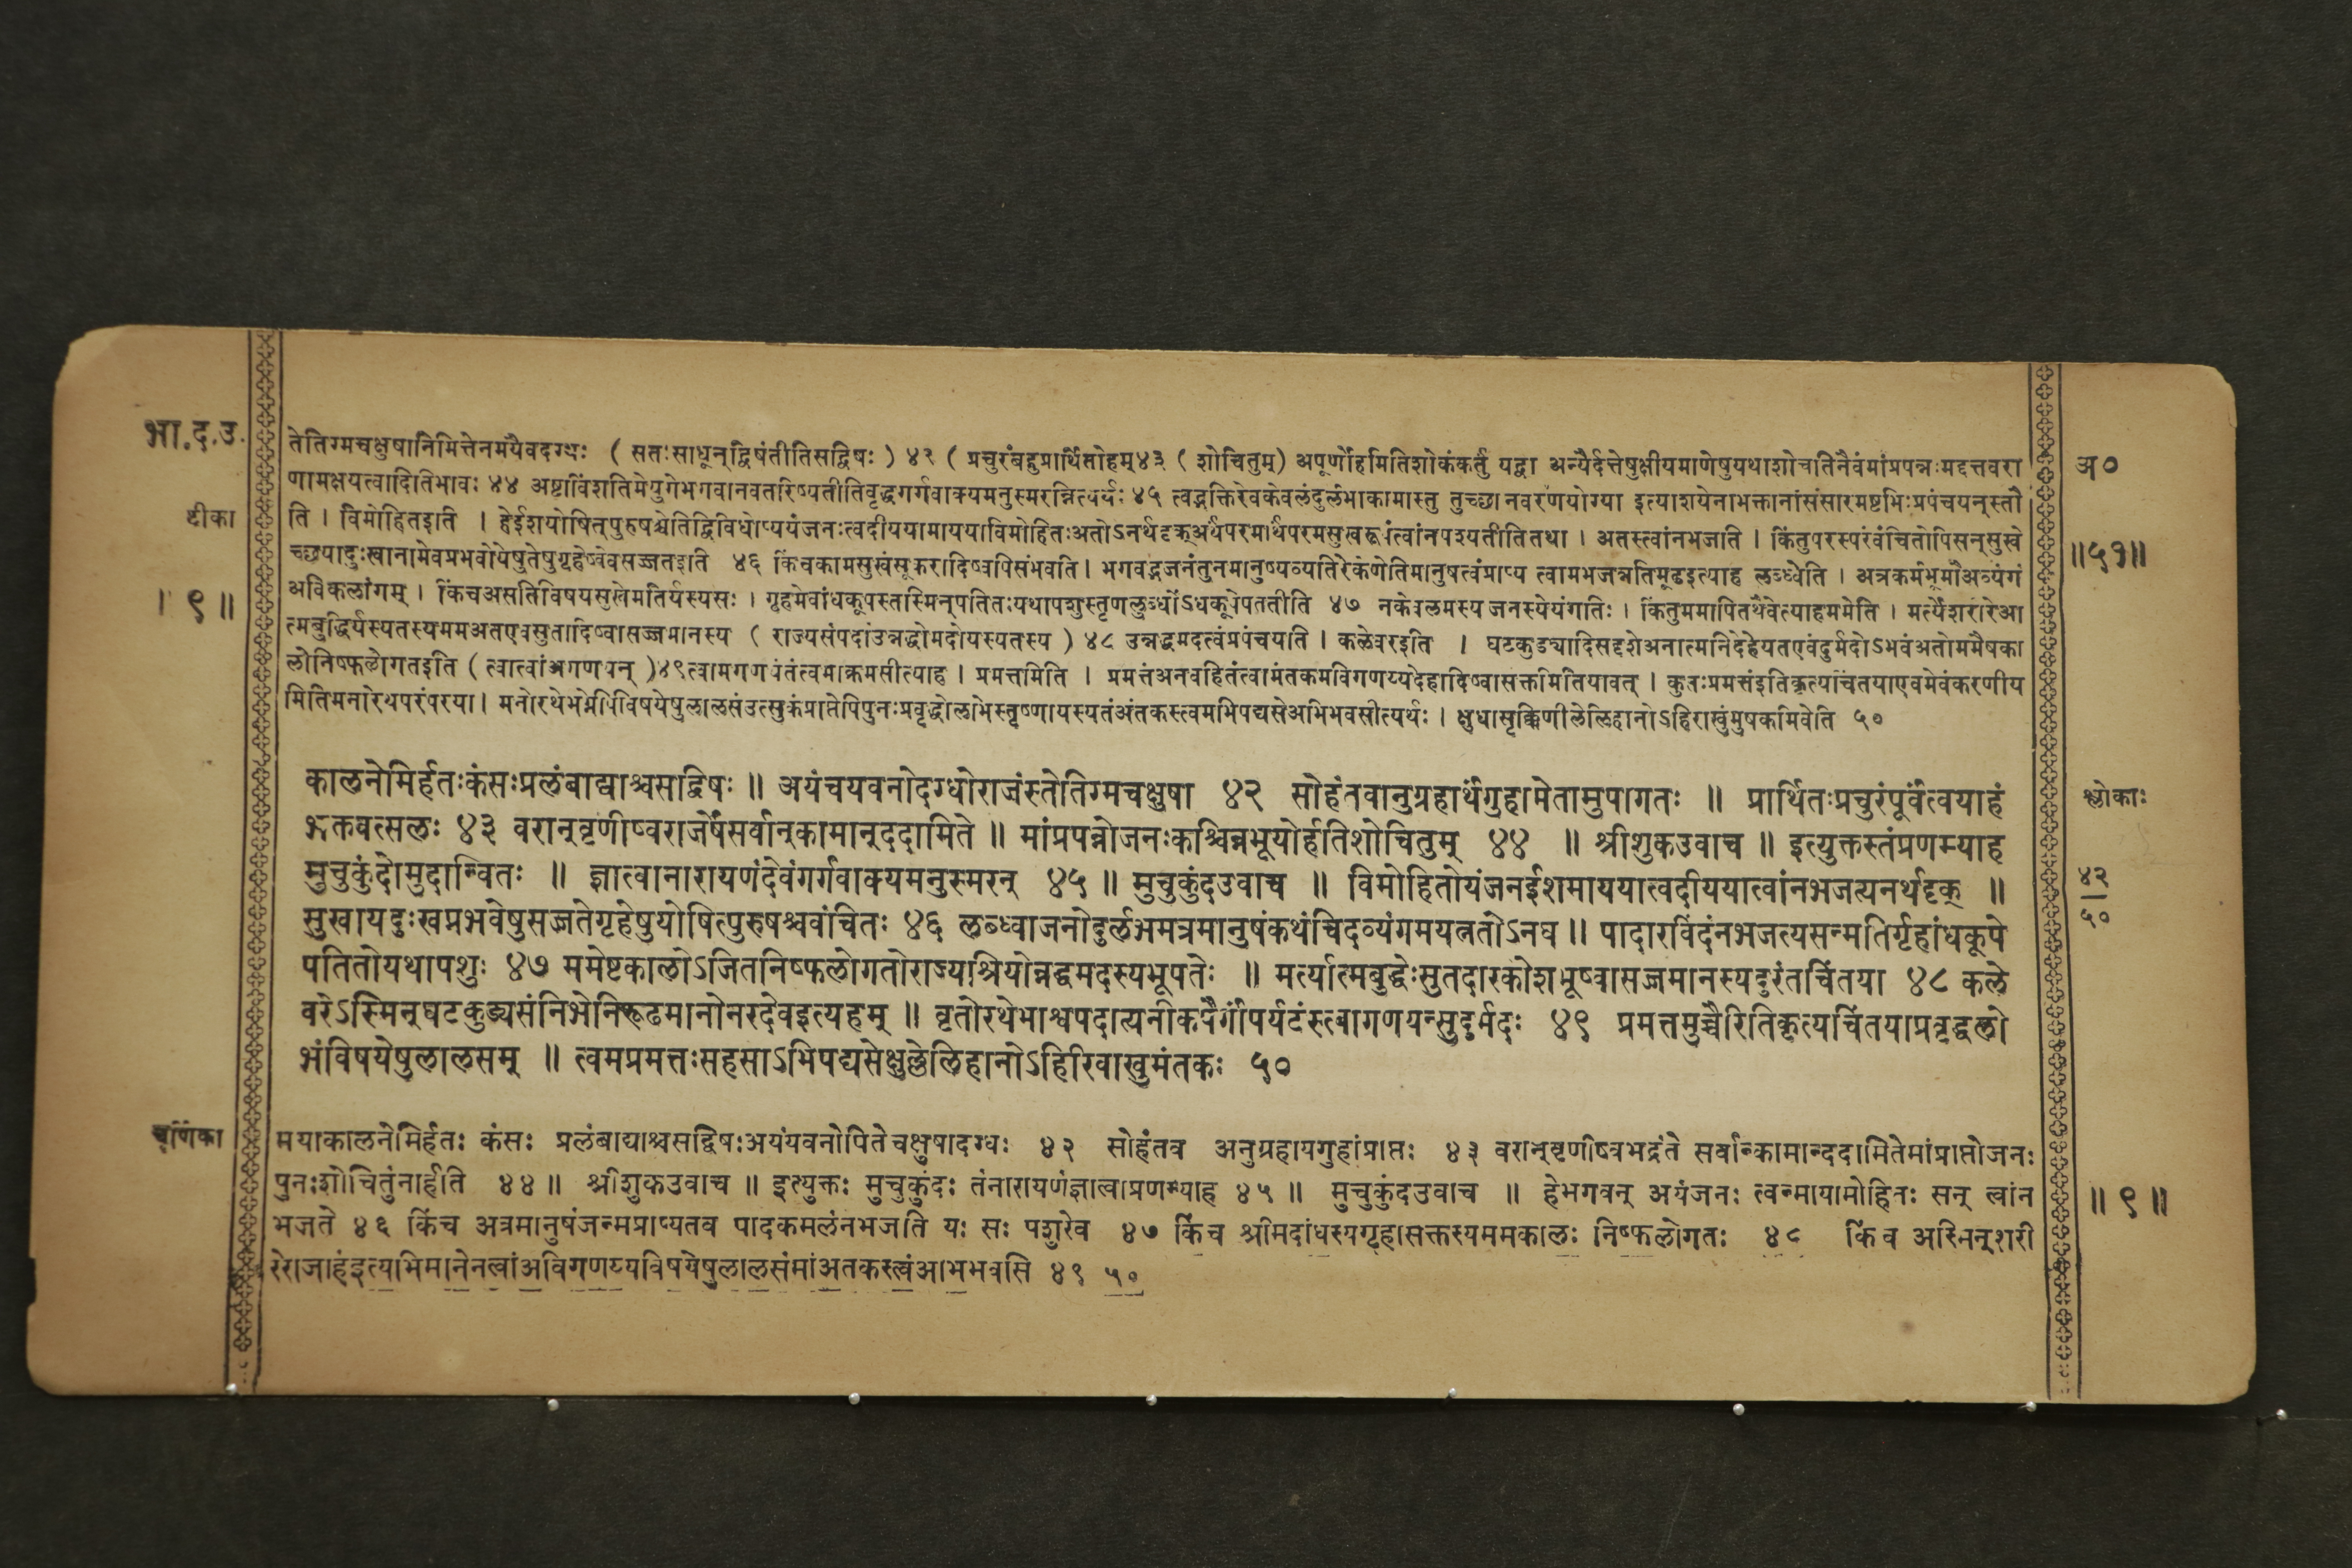 भा.द.उ.
टीका
। ९ ॥
तेतिग्मचक्षुषानिमित्तेनमयैवदग्धः ( सतःसाधून्द्विषंतीतिसद्विषः ) ४२ ( प्रचुरंबहुप्रार्थितोहम्४३ ( शोचितुम्) अपूर्णोहमितिशोकंकर्तुं यद्वा अन्यैर्दत्तेषुक्षीयमाणेषुयथाशोचतिनैवंमांप्रपन्नःमद्दत्तवरा
णामक्षयत्वादितिभावः ४४ अष्टाविंशतिमेयुगेभगवानवतरिष्यतीतिवृद्धगर्गवाक्यमनुस्मरन्नित्यर्थः ४५ त्वद्भक्तिरेवकेवलंदुर्लभाकामास्तु तुच्छानवरणयोग्या इत्याशयेनाभक्तानांसंसारमष्टभिःप्रपंचयन्स्तौ
ति । विमोहितइति । हेईशयोषित्पुरुषश्चेतिद्विविधोप्ययंजनःत्वदीययामाययाविमोहितःअतोऽनर्थदृक्अर्थपरमार्थपरमसुखरूपंत्वांनपश्यतीतितथा । अतस्त्वांनभजति । किंतुपरस्परंवंचितोपिसन्सुखे
च्छयादुःखानामेवप्रभवोयेषुतेषुगृहेष्वेवसज्जतइति ४६ किंचकामसुखंसूकरादिष्वपिसंभवति । भगवद्भजनंतुनमानुष्यव्यतिरेकेणेतिमानुषत्वंप्राप्य त्वामभजन्नतिमूढइत्याह लब्ध्वेति । अत्रकर्मभूमौअव्यंगं
अविकलांगम् । किंचअसतिविषयसुखेमतिर्यस्यसः । गृहमेवांधकूपस्तस्मिन्पतितःयथापशुस्तृणलुब्धोंऽधकूपेपततीति ४७ नकेवलमस्य जनस्येयंगतिः । किंतुममापितथैवेत्याहममेति । मर्त्येशरीरेआ
त्मबुद्धिर्यस्यतस्यममअतएवसुतादिष्वासज्जमानस्य ( राज्यसंपदांउन्नद्धोमदोयस्यतस्य ) ४८ उन्नद्धमदत्वंप्रपंचयति । कळेवरइति । घटकुड्यादिसदृशेअनात्मनिदेहेयतएवंदुर्मदोऽभवंअतोममैषका
लोनिष्फलोगतइति ( त्वात्वांअगणयन् )४९त्वामगणयंतंत्वमाक्रमसीत्याह । प्रमत्तमिति । प्रमत्तंअनवहितंत्वामंतकमविगणय्यदेहादिष्वासक्तमितियावत् । कुतःप्रमत्तंइतिकृत्यचिंतयाएवमेवंकरणीय
मितिमनोरथपरंपरया । मनोरथेभग्नेपिविषयेषुलालसंउत्सुकंप्राप्तेपिपुनःप्रवृद्धोलोभस्तृष्णायस्यतंअंतकस्त्वमभिपद्यसेअभिभवसीत्यर्थः । क्षुधासृक्किणीलेलिहानोऽहिराखुंमुषकमिवेति ५०
अ०
॥५१॥
कालनेमिर्हतःकंसःप्रलंबाद्याश्चसद्विषः ॥ अयंचयवनोदग्धोराजंस्तेतिग्मचक्षुषा ४२ सोहंतवानुग्रहार्थंगुहामेतामुपागतः ॥ प्रार्थितःप्रचुरंपूर्वंत्वयाहं
भक्तवत्सलः ४३ वरान्वृणीष्वराजर्षेसर्वान्कामान्ददामिते ॥ मांप्रपन्नोजनःकश्चिन्नभूयोर्हतिशोचितुम् ४४ ॥ श्रीशुकउवाच ॥ इत्युक्तस्तंप्रणम्याह
मुचुकुंदोमुदान्वितः ॥ ज्ञात्वानारायणंदेवंगर्गवाक्यमनुस्मरन् ४५ ॥ मुचुकुंदउवाच ॥ विमोहितोयंजनईशमाययात्वदीययात्वांनभजत्यनर्थदृक् ॥
सुखायदुःखप्रभवेषुसज्जतेगृहेषुयोषित्पुरुषश्चवंचितः ४६ लब्ध्वाजनोदुर्लभमत्रमानुषंकथंचिदव्यंगमयत्नतोऽनघ ॥ पादारविंदंनभजत्यसन्मतिर्गृहांधकूपे
पतितोयथापशुः ४७ ममेष्टकालोऽजितनिष्फलोगतोराज्यश्रियोन्नद्धमदस्यभूपतेः ॥ मर्त्यात्मबुद्धेःसुतदारकोशभूष्वासज्जमानस्यदुरंतचिंतया ४८ कले
वरेऽस्मिन्घटकुड्यसंनिभेनिरूढमानोनरदेवइत्यहम् ॥ वृतोरथेभाश्वपदात्यनीकपैर्गांपर्यटंस्त्वागणयन्सुदुर्मदः ४९ प्रमत्तमुच्चैरितिकृत्यचिंतयाप्रवृद्धलो
भंविषयेषुलालसम् ॥ त्वमप्रमत्तःसहसाऽभिपद्यसेक्षुल्लेलिहानोऽहिरिवाखुमंतकः ५०
श्लोकाः
४२
५०
चूर्णिका
मयाकालनेमिर्हतः कंसः प्रलंबाद्याश्चसद्विषःअयंयवनोपिते चक्षुषादग्धः ४२ सोहंतव अनुग्रहायगुहांप्राप्तः ४३ वरान्वृणीष्वभद्रंते सर्वान्कामान्ददामितेमांप्राप्तोजनः
पुनःशोचितुंनार्हति ४४ ॥ श्रीशुकउवाच ॥ इत्युक्तः मुचुकुंदः तंनारायणंज्ञात्वाप्रणम्याह ४५ ॥ मुचुकुंदउवाच ॥ हेभगवन् अयंजनः त्वन्मायामोहितः सन् त्वांन
भजते ४६ किंच अत्रमानुषंजन्मप्राप्यतव पादकमलंनभजति यः सः पशुरेव ४७ किंच श्रीमदांधस्यगृहासक्तस्यममकालः निष्फलोगतः ४८ किंच अस्मिन्शरी
रेराजाहंइत्यभिमानेनत्वांअविगणय्यविषयेषुलालसंमांअंतकस्त्वंअभिभवसि ४९ ५०
॥ ९ ॥